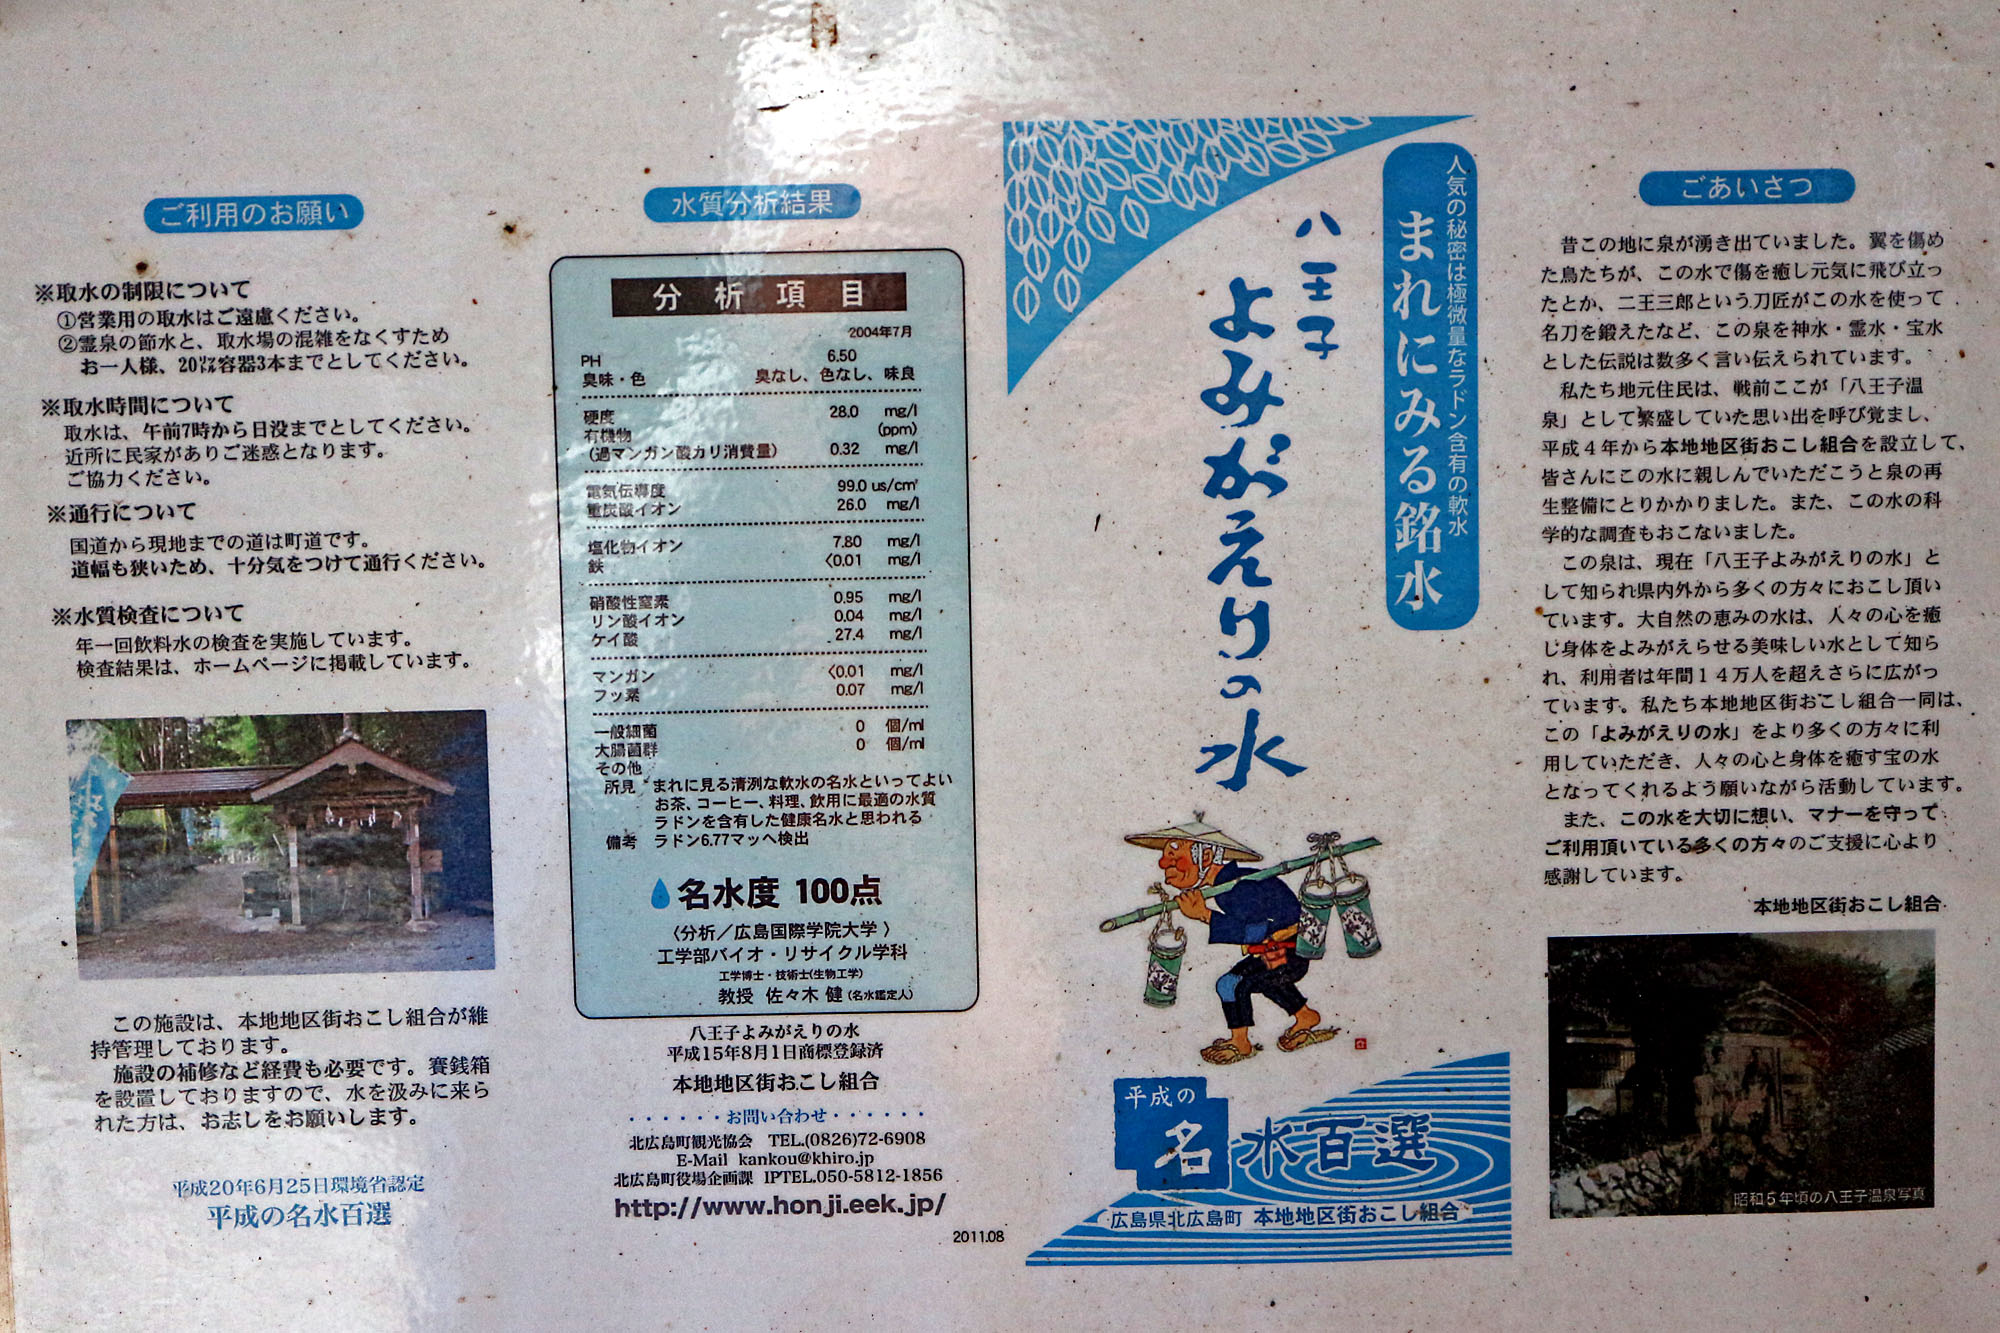 ご利用のお願い
※取水の制限について
①営業用の取水はご遠慮ください。
②霊泉の節水と、取水場の混雑をなくすため
お一人様、20㍑容器3本までとしてください。
※取水時間について
取水は、午前7時から日没までとしてください。
近所に民家がありご迷惑となります。
ご協力ください。
※通行について
国道から現地までの道は町道です。
道幅も狭いため、十分気をつけて通行ください。
※水質検査について
年一回飲料水の検査を実施しています。
検査結果は、ホームページに掲載しています。
この施設は、本地地区街おこし組合が維
持管理しております。
施設の補修など経費も必要です。賽銭箱
を設置しておりますので、水を汲みに来ら
れた方は、お志しをお願いします。
平成20年6月25日環境省認定
平成の名水百選
水質分析結果
分析項目
2004年7月
PH 6.50
臭味・色 臭なし、色なし、味良
硬度 28.0 mg/l
有機物 (ppm)
(過マンガン酸カリ消費量) 0.32 mg/l
電気伝導度 99.0 us/cm²
重炭酸イオン 26.0 mg/l
塩化物イオン 7.80 mg/l
鉄 <0.01 mg/l
硝酸性窒素 0.95 mg/l
リン酸イオン 0.04 mg/l
ケイ酸 27.4 mg/l
マンガン <0.01 mg/l
フッ素 0.07 mg/l
一般細菌 0 個/ml
大腸菌群 0 個/ml
その他
所見 まれに見る清冽な軟水の名水といってよい
お茶、コーヒー、料理、飲用に最適の水質
ラドンを含有した健康名水と思われる
備考 ラドン6.77マッヘ検出
名水度 100点
〈分析／広島国際学院大学〉
工学部バイオ・リサイクル学科
工学博士・技術士(生物工学)
教授 佐々木 健(名水鑑定人)
八王子よみがえりの水
平成15年8月1日商標登録済
本地地区街おこし組合
・・・・・・お問い合わせ・・・・・・
北広島町観光協会 TEL.(0826)72-6908
E-Mail kankou@khiro.jp
北広島町役場企画課 IPTEL.050-5812-1856
http://www.honji.eek.jp/
2011.08
人気の秘密は極微量なラドン含有の軟水
まれにみる銘水
八王子
よみがえりの水
平成の
名水百選
広島県北広島町 本地地区街おこし組合
ごあいさつ
昔この地に泉が湧き出ていました。翼を傷め
た鳥たちが、この水で傷を癒し元気に飛び立っ
たとか、二王三郎という刀匠がこの水を使って
名刀を鍛えたなど、この泉を神水・霊水・宝水
とした伝説は数多く言い伝えられています。
私たち地元住民は、戦前ここが「八王子温
泉」として繁盛していた思い出を呼び覚まし、
平成４年から本地地区街おこし組合を設立して、
皆さんにこの水に親しんでいただこうと泉の再
生整備にとりかかりました。また、この水の科
学的な調査もおこないました。
この泉は、現在「八王子よみがえりの水」と
して知られ県内外から多くの方々におこし頂い
ています。大自然の恵みの水は、人々の心を癒
じ身体をよみがえらせる美味しい水として知ら
れ、利用者は年間１４万人を超えさらに広がっ
ています。私たち本地地区街おこし組合一同は、
この「よみがえりの水」をより多くの方々に利
用していただき、人々の心と身体を癒す宝の水
となってくれるよう願いながら活動しています。
また、この水を大切に想い、マナーを守って
ご利用頂いている多くの方々のご支援に心より
感謝しています。
本地地区街おこし組合
昭和５年頃の八王子温泉写真